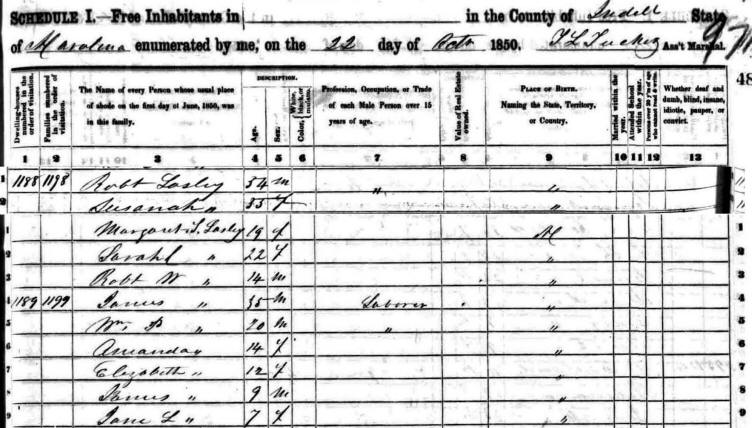 SCHEDULE I.—Free Inhabitants in in the County of Iredell State
of N Carolina enumerated by me, on the 22 day of Octr 1850. Ass't Marshal.
48
Dwelling-houses numbered in the order of visitation.
Families numbered in the order of visitation.
The Name of every Person whose usual place of abode on the first day of June, 1850, was in this family.
DESCRIPTION.
Age.
Sex.
Color, White, black, or mulatto.
Profession, Occupation, or Trade of each Male Person over 15 years of age.
Value of Real Estate owned.
PLACE OF BIRTH.
Naming the State, Territory, or Country.
Married within the year.
Attended School within the year.
Persons over 20 y'rs of age who cannot read & write.
Whether deaf and dumb, blind, insane, idiotic, pauper, or convict.
1 2 3 4 5 6 7 8 9 10 11 12 13
1 1188 1198 Robt Lasley 54 m " "
2 Susanah " 55 f "
1 Margaret S. Lasley 19 f 1
2 Sarah L " 22 f " 2
3 Robt W " 14 m " 3
4 1189 1199 James " 35 m Laborer " 4
5 Wm P " 20 m " " 5
6 Amanda " 14 f " 6
7 Elizabeth " 12 f " 7
8 James " 9 m " 8
9 Jane L " 7 f " 9